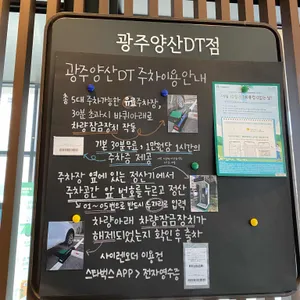 광주양산DT점
광주양산DT 주차이용안내
총 5대 주차가능한 유료주차장,
30분 초과시 바퀴아래로
차량잠금장치 작동
기본 30분무료, 1만원당 1시간의
주차료 제공
주차장 옆에있는 정산기에서
주차공간 앞 번호를 누르고 정산
01~05번으로 반드시 두자리로 입력
차량아래 차량잠금장치가
해제되었는지 확인 후 출차
사이렌오더 이용건
스타벅스 APP > 전자영수증